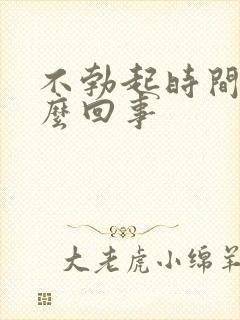 不勃起時間
麼回事
大老虎小绵羊